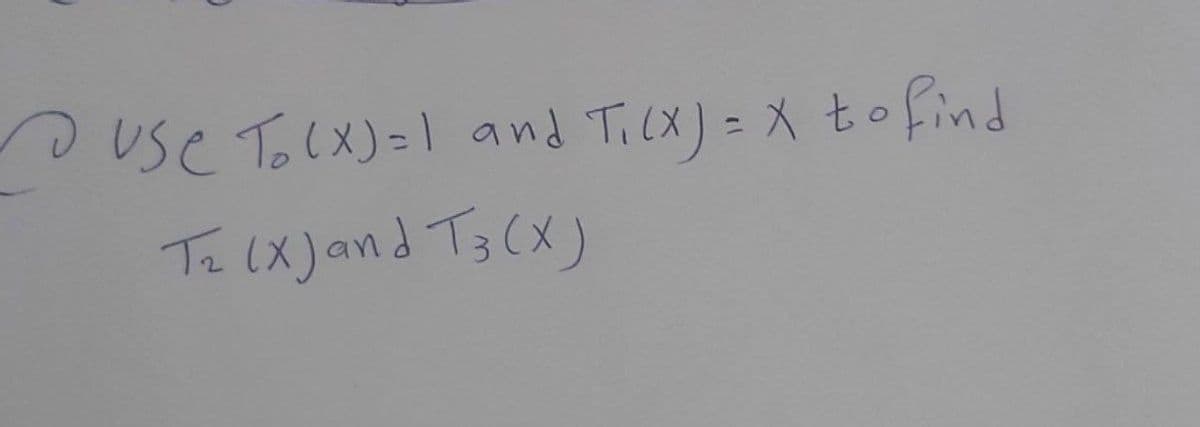 Use To(x)=1 and T1(x) = x to find
T2 (x) and T3(x)